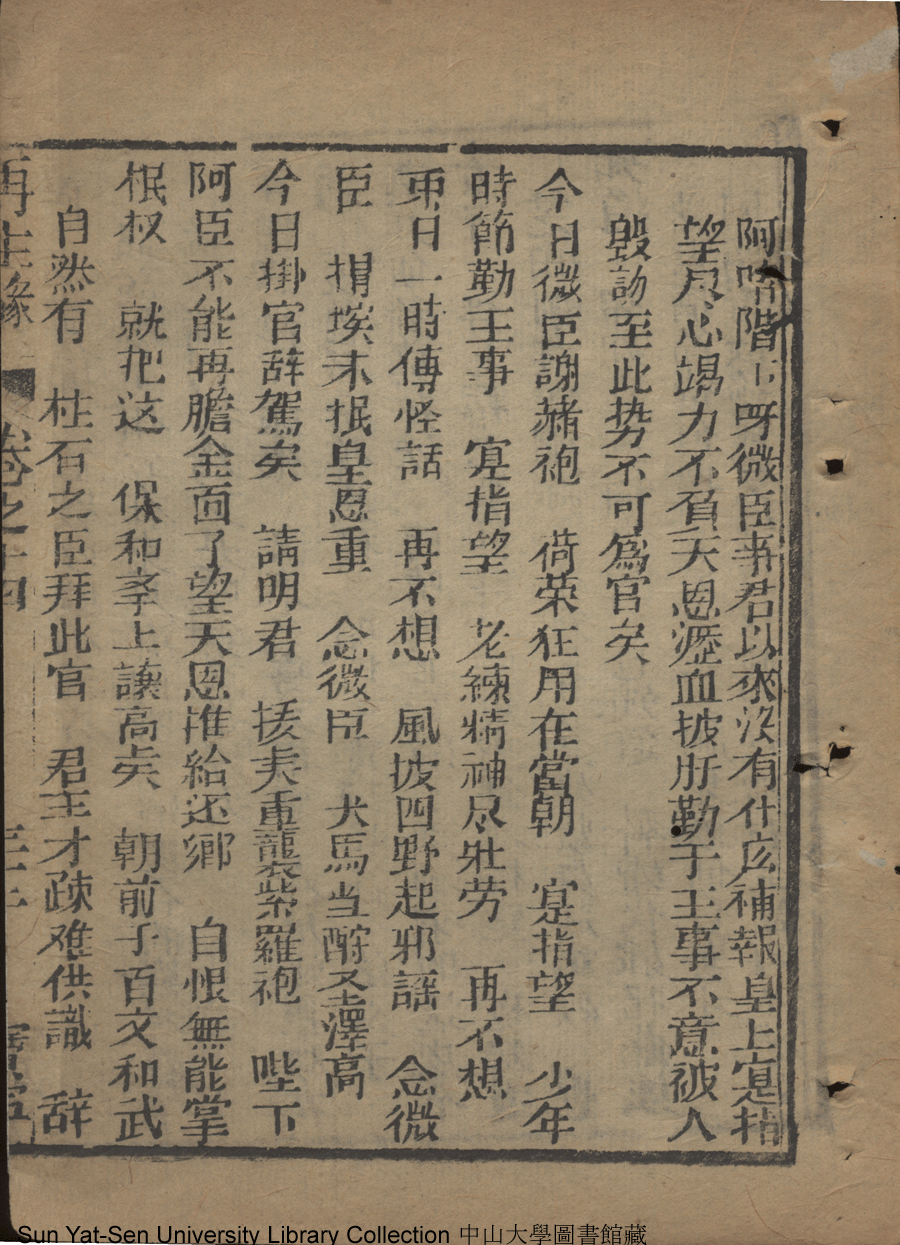 阿唷階下呀微臣事君以來沒有什広補報皇上寔指
望尽心竭力不負天恩瀝血披肝勤于王事不意被人
毀謗至此势不可為官矣
今日微臣謝赭袍　荷荣狂用在當朝　寔指望　少年
時節勤王事　寔指望　老練精神尽壯劳　再不想
東日一時傳怪話　再不想　風披四野起邪謡　念微
臣　捐埃未抿皇恩重　念微臣　犬馬当酧圣澤高
今日掛官辞駕矣　請明君　援夫重襲紫羅袍　陛下
阿臣不能再膽金面了望天恩准給还鄉　自恨無能掌
抿权　就把这　保和孝上讓高矣　朝前子百文和武
自然有　柱石之臣拜此官　君王才疎难供識　辞
再生緣　卷之十四
Sun Yat-Sen University Library Collection 中山大學圖書館藏